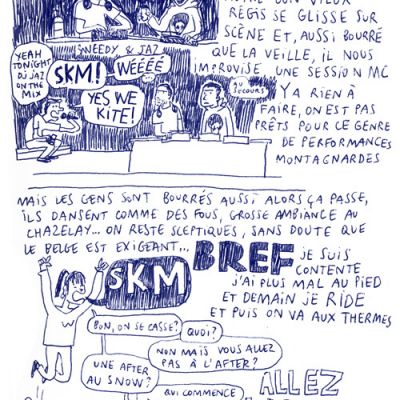 BON VIEUX
RÉGIS SE GLISSE SUR
SCÈNE ET, AUSSI BOURRÉ
QUE LA VEILLE, IL NOUS
IMPROVISE UNE SESSION MC
SWEEDY & JAZ
YEAH
TONIGHT
DJ JAZ
ON THE
MIX
SKM!
WÉÉÉÉ
YES WE
KITE!
AU
SECOURS
Y'A RIEN À
FAIRE, ON EST PAS
PRÊTS POUR CE GENRE
DE PERFORMANCES
MONTAGNARDES
MAIS LES GENS SONT BOURRÉS AUSSI ALORS ÇA PASSE,
ILS DANSENT COMME DES FOUS, GROSSE AMBIANCE AU
CHAZELAY... ON RESTE SCEPTIQUES, SANS DOUTE QUE
LE BELGE EST EXIGEANT...
BREF JE SUIS
CONTENTE
J'AI PLUS MAL AU PIED
ET DEMAIN JE RIDE
ET PUIS ON VA AUX THERMES
SKM
BON, ON SE CASSE?
QUOI?
NON MAIS VOUS ALLEZ
PAS À L'AFTER?
UNE AFTER
AU SNOW?
QUI COMMENCE
ALLEZ